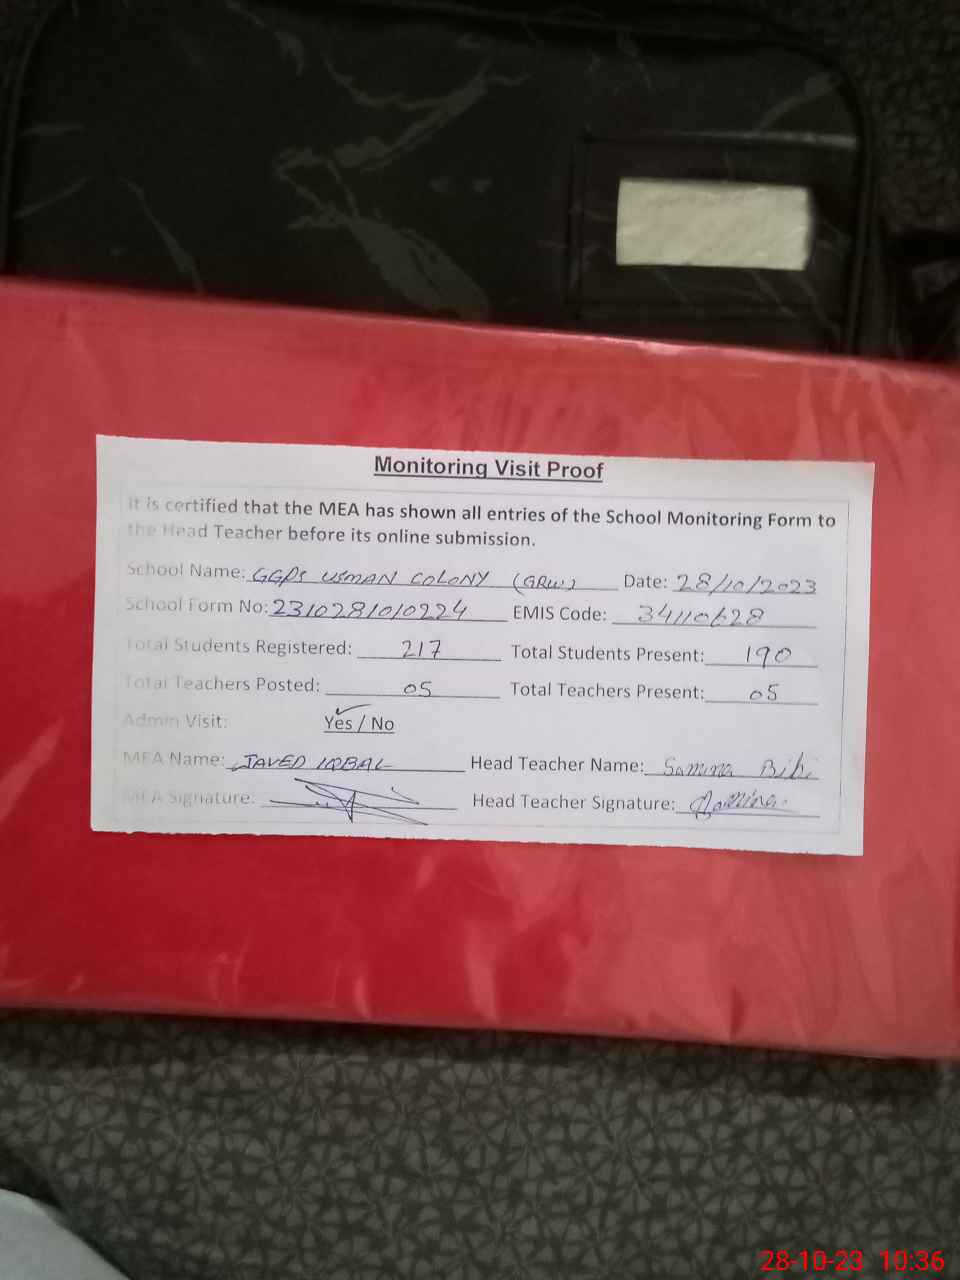 Monitoring Visit Proof
It is certified that the MEA has shown all entries of the School Monitoring Form to
the Head Teacher before its online submission.
School Name: GGPS USMAN COLONY (GRW) Date: 28/10/2023
School Form No: 2310281010224 EMIS Code: 34110628
Total Students Registered: 217 Total Students Present: 190
Total Teachers Posted: 05 Total Teachers Present: 05
Admin Visit: Yes / No
MEA Name: JAVED IQBAL Head Teacher Name: Samina Bibi
MEA Signature: Head Teacher Signature: Samina
28-10-23 10:36